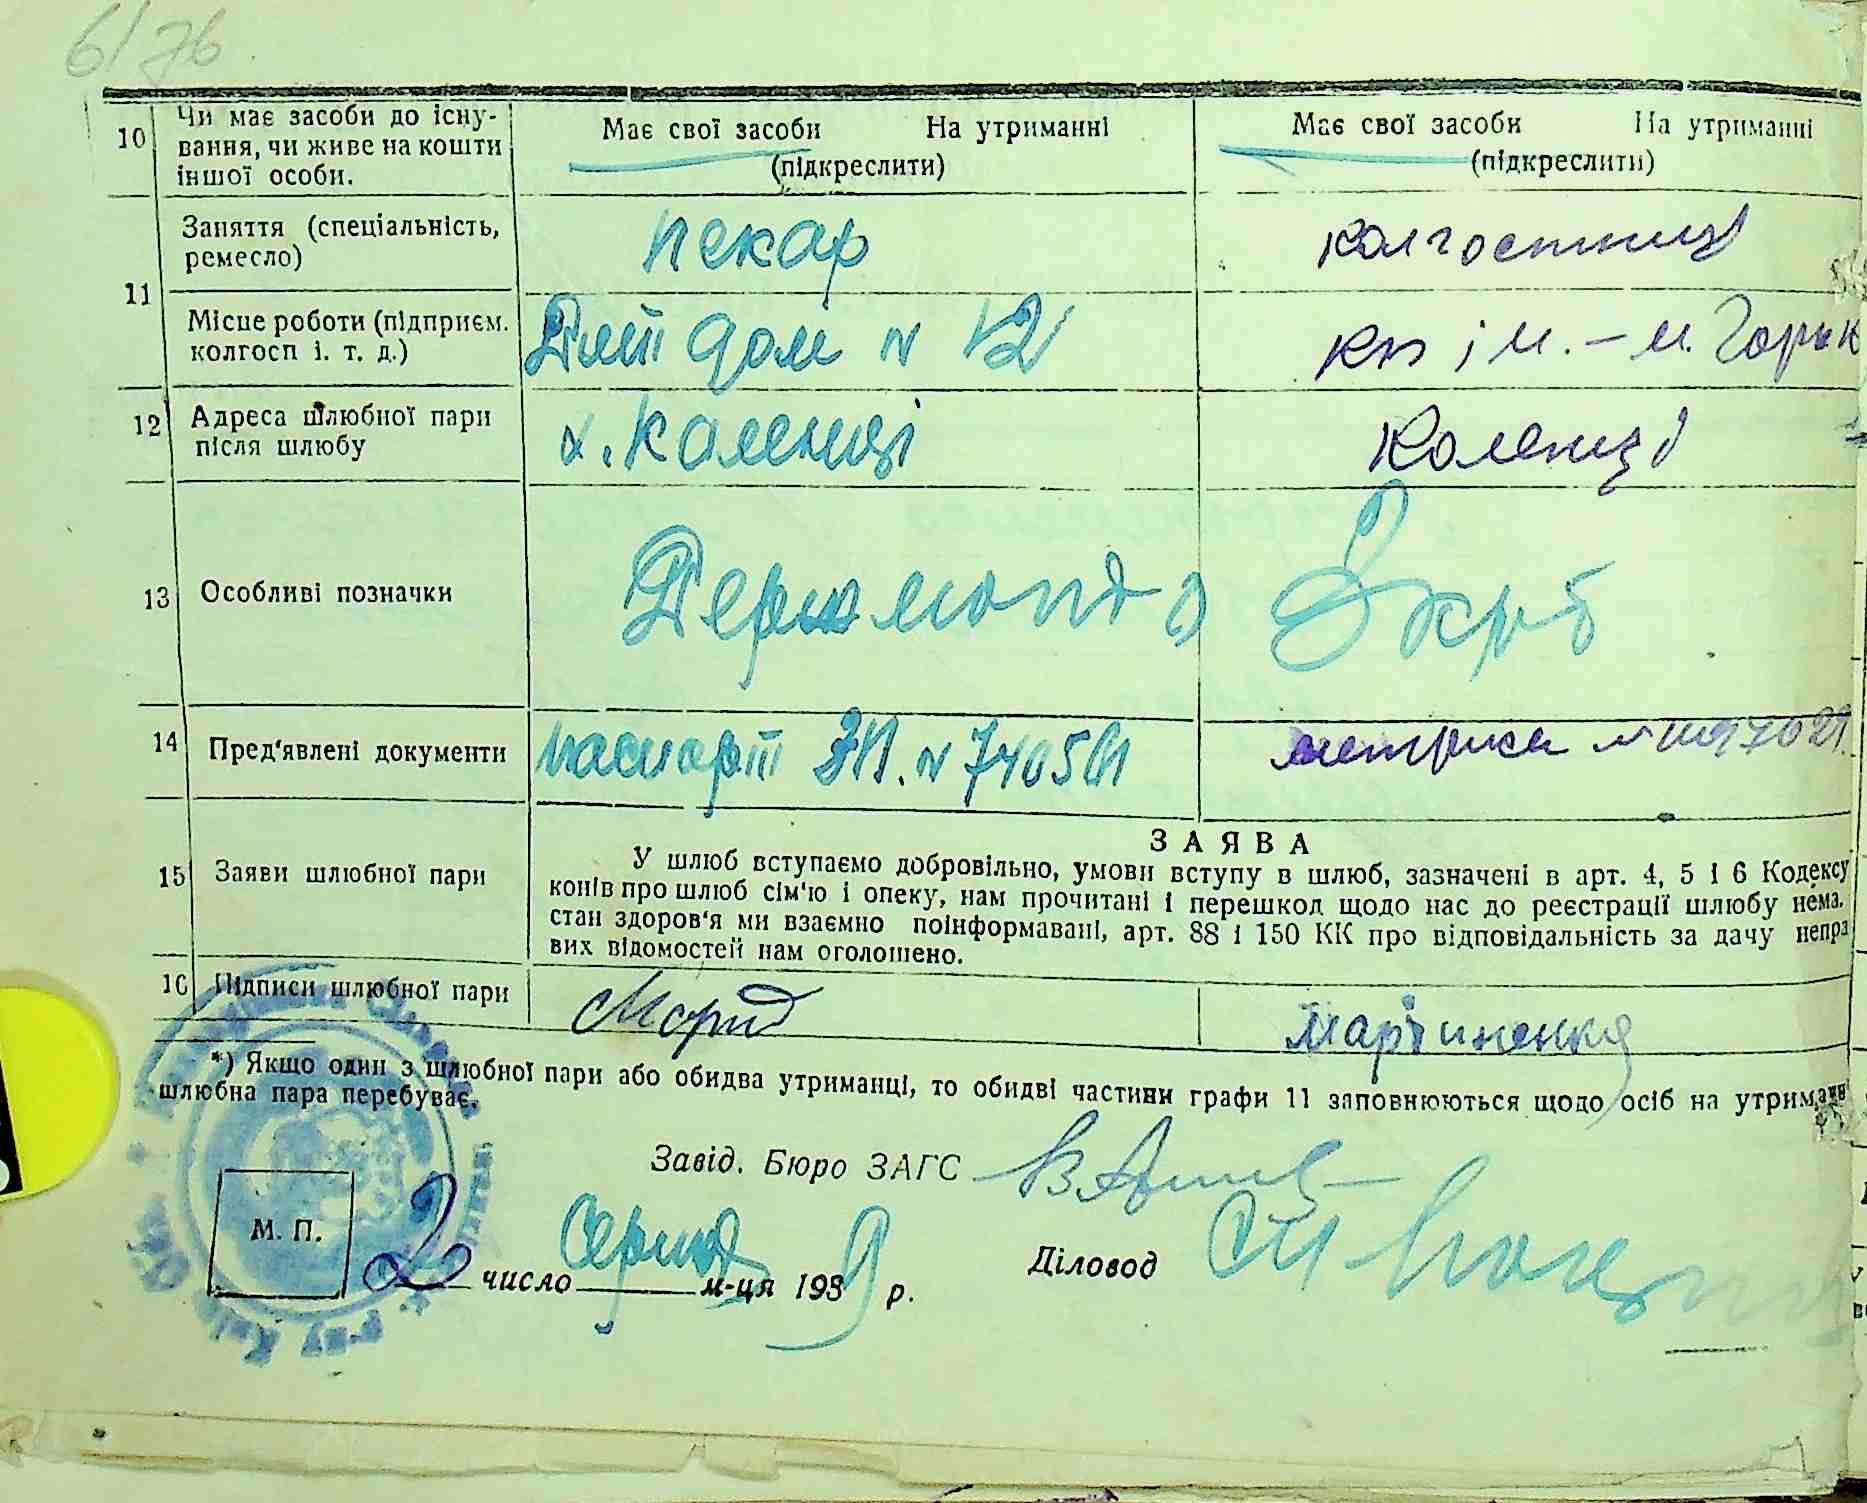 6/76
10 Чи має засоби до існу-
вання, чи живе на кошти
іншої особи.
Має свої засоби На утриманні
(підкреслити)
Має свої засоби На утриманні
(підкреслити)
11
Заняття (спеціальність,
ремесло)
пекар
колгоспниця
Місце роботи (підприєм.
колгосп і. т. д.)
Дит дом № 12
кп ім. - М. Горьк
12 Адреса шлюбної пари
після шлюбу
х. Коленці
Коленці
13 Особливі позначки
14 Пред'явлені документи
паспорт
метрика №
15 Заяви шлюбної пари
ЗАЯВА
У шлюб вступаємо добровільно, умови вступу в шлюб, зазначені в арт. 4, 5 і 6 Кодексу
конів про шлюб сім'ю і опеку, нам прочитані і перешкод щодо нас до реєстрації шлюбу нема.
стан здоров'я ми взаємно поінформавані, арт. 88 і 150 КК про відповідальність за дачу непра
вих відомостей нам оголошено.
16 Підписи шлюбної пари
Мартиненко
*) Якщо один з шлюбної пари або обидва утриманці, то обидві частини графи 11 заповнюються щодо осіб на утриман
шлюбна пара перебуває.
Завід. Бюро ЗАГС
М. П.
2 число Серпня м-ця 1939 р.
Діловод